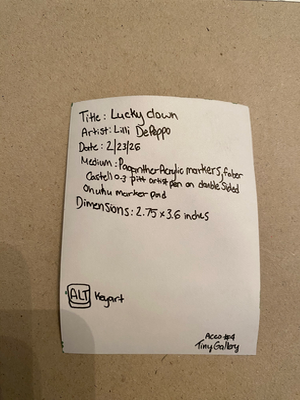 Title: Lucky clown
Artist: Lilli DePoppo
Date: 2/23/26
Medium: Acrylic markers, faber
Castell 0.3 pitt artist pen on double sided
Ohuhu marker pad
Dimensions: 2.75 x 3.6 inches
ALT Keyart
Tiny Gallery